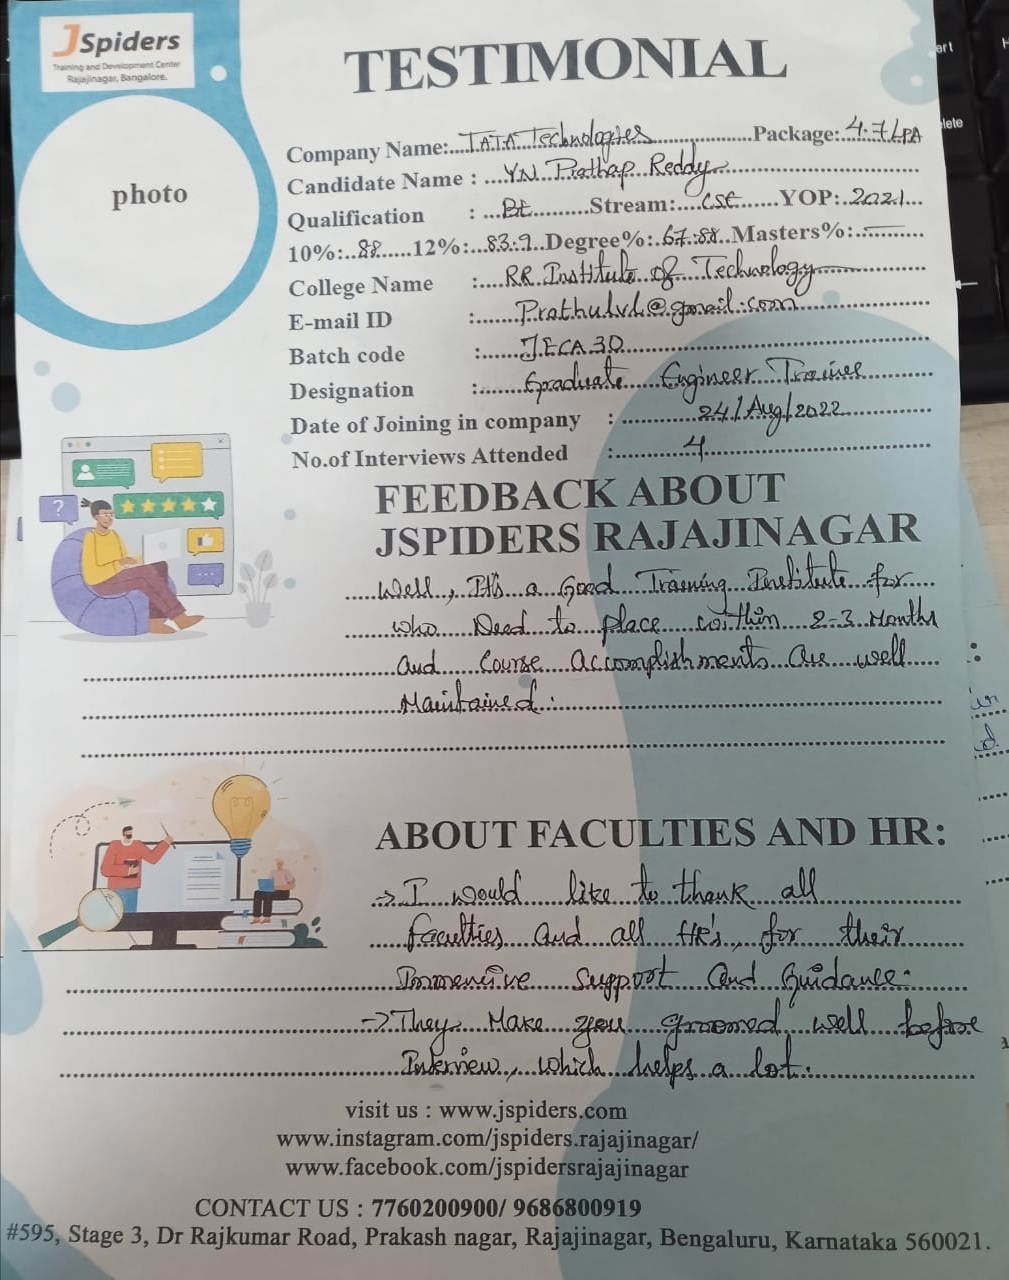 JSpiders
Training and Development Center
Rajajinagar, Bangalore.
TESTIMONIAL
photo
Company Name:...TATA Technologies...Package: 4.7LPA
Candidate Name : ...Y.N. Prathap Reddy...
Qualification : ...BE...Stream:...CSE...YOP: 2021...
10%:..88...12%:..83.9..Degree%:.67.88..Masters%:...
College Name :...RR Institute of Technology...
E-mail ID :...Prathulvl@gmail.com...
Batch code :...JECA30...
Designation :...Graduate Engineer Trainee...
Date of Joining in company : ...24/Aug/2022...
No.of Interviews Attended :...4...
FEEDBACK ABOUT
JSPIDERS RAJAJINAGAR
Well, It's a Good Training Institute for
who Need to place within 2-3 Months
and Course accomplishments are well
Maintained.
ABOUT FACULTIES AND HR:
→ I would like to thank all
faculties and all HR's, for their
Immensive support and Guidance.
→ They Make you groomed well before
Interview, which helps a lot.
visit us : www.jspiders.com
www.instagram.com/jspiders.rajajinagar/
www.facebook.com/jspidersrajajinagar
CONTACT US : 7760200900/ 9686800919
#595, Stage 3, Dr Rajkumar Road, Prakash nagar, Rajajinagar, Bengaluru, Karnataka 560021.